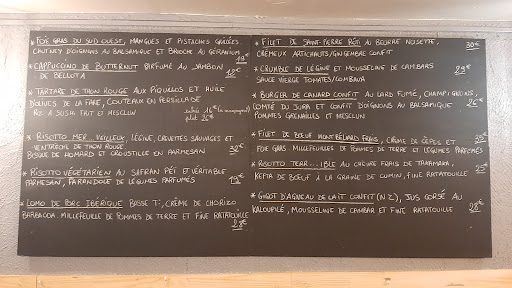 * FOIE GRAS DU SUD OUEST, MANGUES ET PISTACHES GRILLÉES
CHUTNEY D'OIGNONS AU BALSAMIQUE ET BRIOCHE AU GÉRANIUM
19€
* CAPPUCCINO DE BUTTERNUT PARFUMÉ AU JAMBON
DE BELLOTA
12€
* TARTARE DE THON ROUGE AUX PIQUILLOS ET HUILE
D'OLIVES DE LA FARE, COUTEAUX EN PERSILLADE
RIZ À SUSHI FRIT ET MESCLUN
entrée 16€ (ss accompagnement)
plat 26€
* RISOTTO MER... VEILLEUX, LÉGINE, CREVETTES SAUVAGES ET
VENTRÈCHE DE THON ROUGE
BISQUE DE HOMARD ET CROUSTILLE EN PARMESAN
32€
* RISOTTO VÉGÉTARIEN AU SAFRAN PÉI ET VÉRITABLE
PARMESAN, FARANDOLE DE LÉGUMES PARFUMÉS
19€
* LOMO DE PORC IBÉRIQUE BASSE T°, CRÈME DE CHORIZO
BARBACOA. MILLEFEUILLE DE POMMES DE TERRE ET FINE RATATOUILLE
28€
* FILET DE SAINT-PIERRE RÔTI AU BEURRE NOISETTE,
CRÉMEUX ARTICHAUTS/GINGEMBRE CONFIT
30€
* CRUMBLE DE LÉGINE ET MOUSSELINE DE CAMBARS
SAUCE VIERGE TOMATES/COMBAVA
29€
* BURGER DE CANARD CONFIT AU LARD FUMÉ, CHAMPIGNONS,
COMTÉ DU JURA ET CONFIT D'OIGNONS AU BALSAMIQUE
POMMES GRENAILLES ET MESCLUN
26€
* FILET DE BŒUF MONTBÉLIARD FRAIS, CRÈME DE CÈPES ET
FOIE GRAS. MILLEFEUILLES DE POMMES DE TERRE ET LÉGUMES PARFUMÉS
* RISOTTO TERR...IBLE AU CHÈVRE FRAIS DE
KEFTA DE BŒUF À LA GRAINE DE CUMIN, FINE RATATOUILLE
25€
* GIGOT D'AGNEAU DE LAIT CONFIT (N.Z), JUS CORSÉ AU
KALOUPILÉ, MOUSSELINE DE CAMBAR ET FINE RATATOUILLE
28€